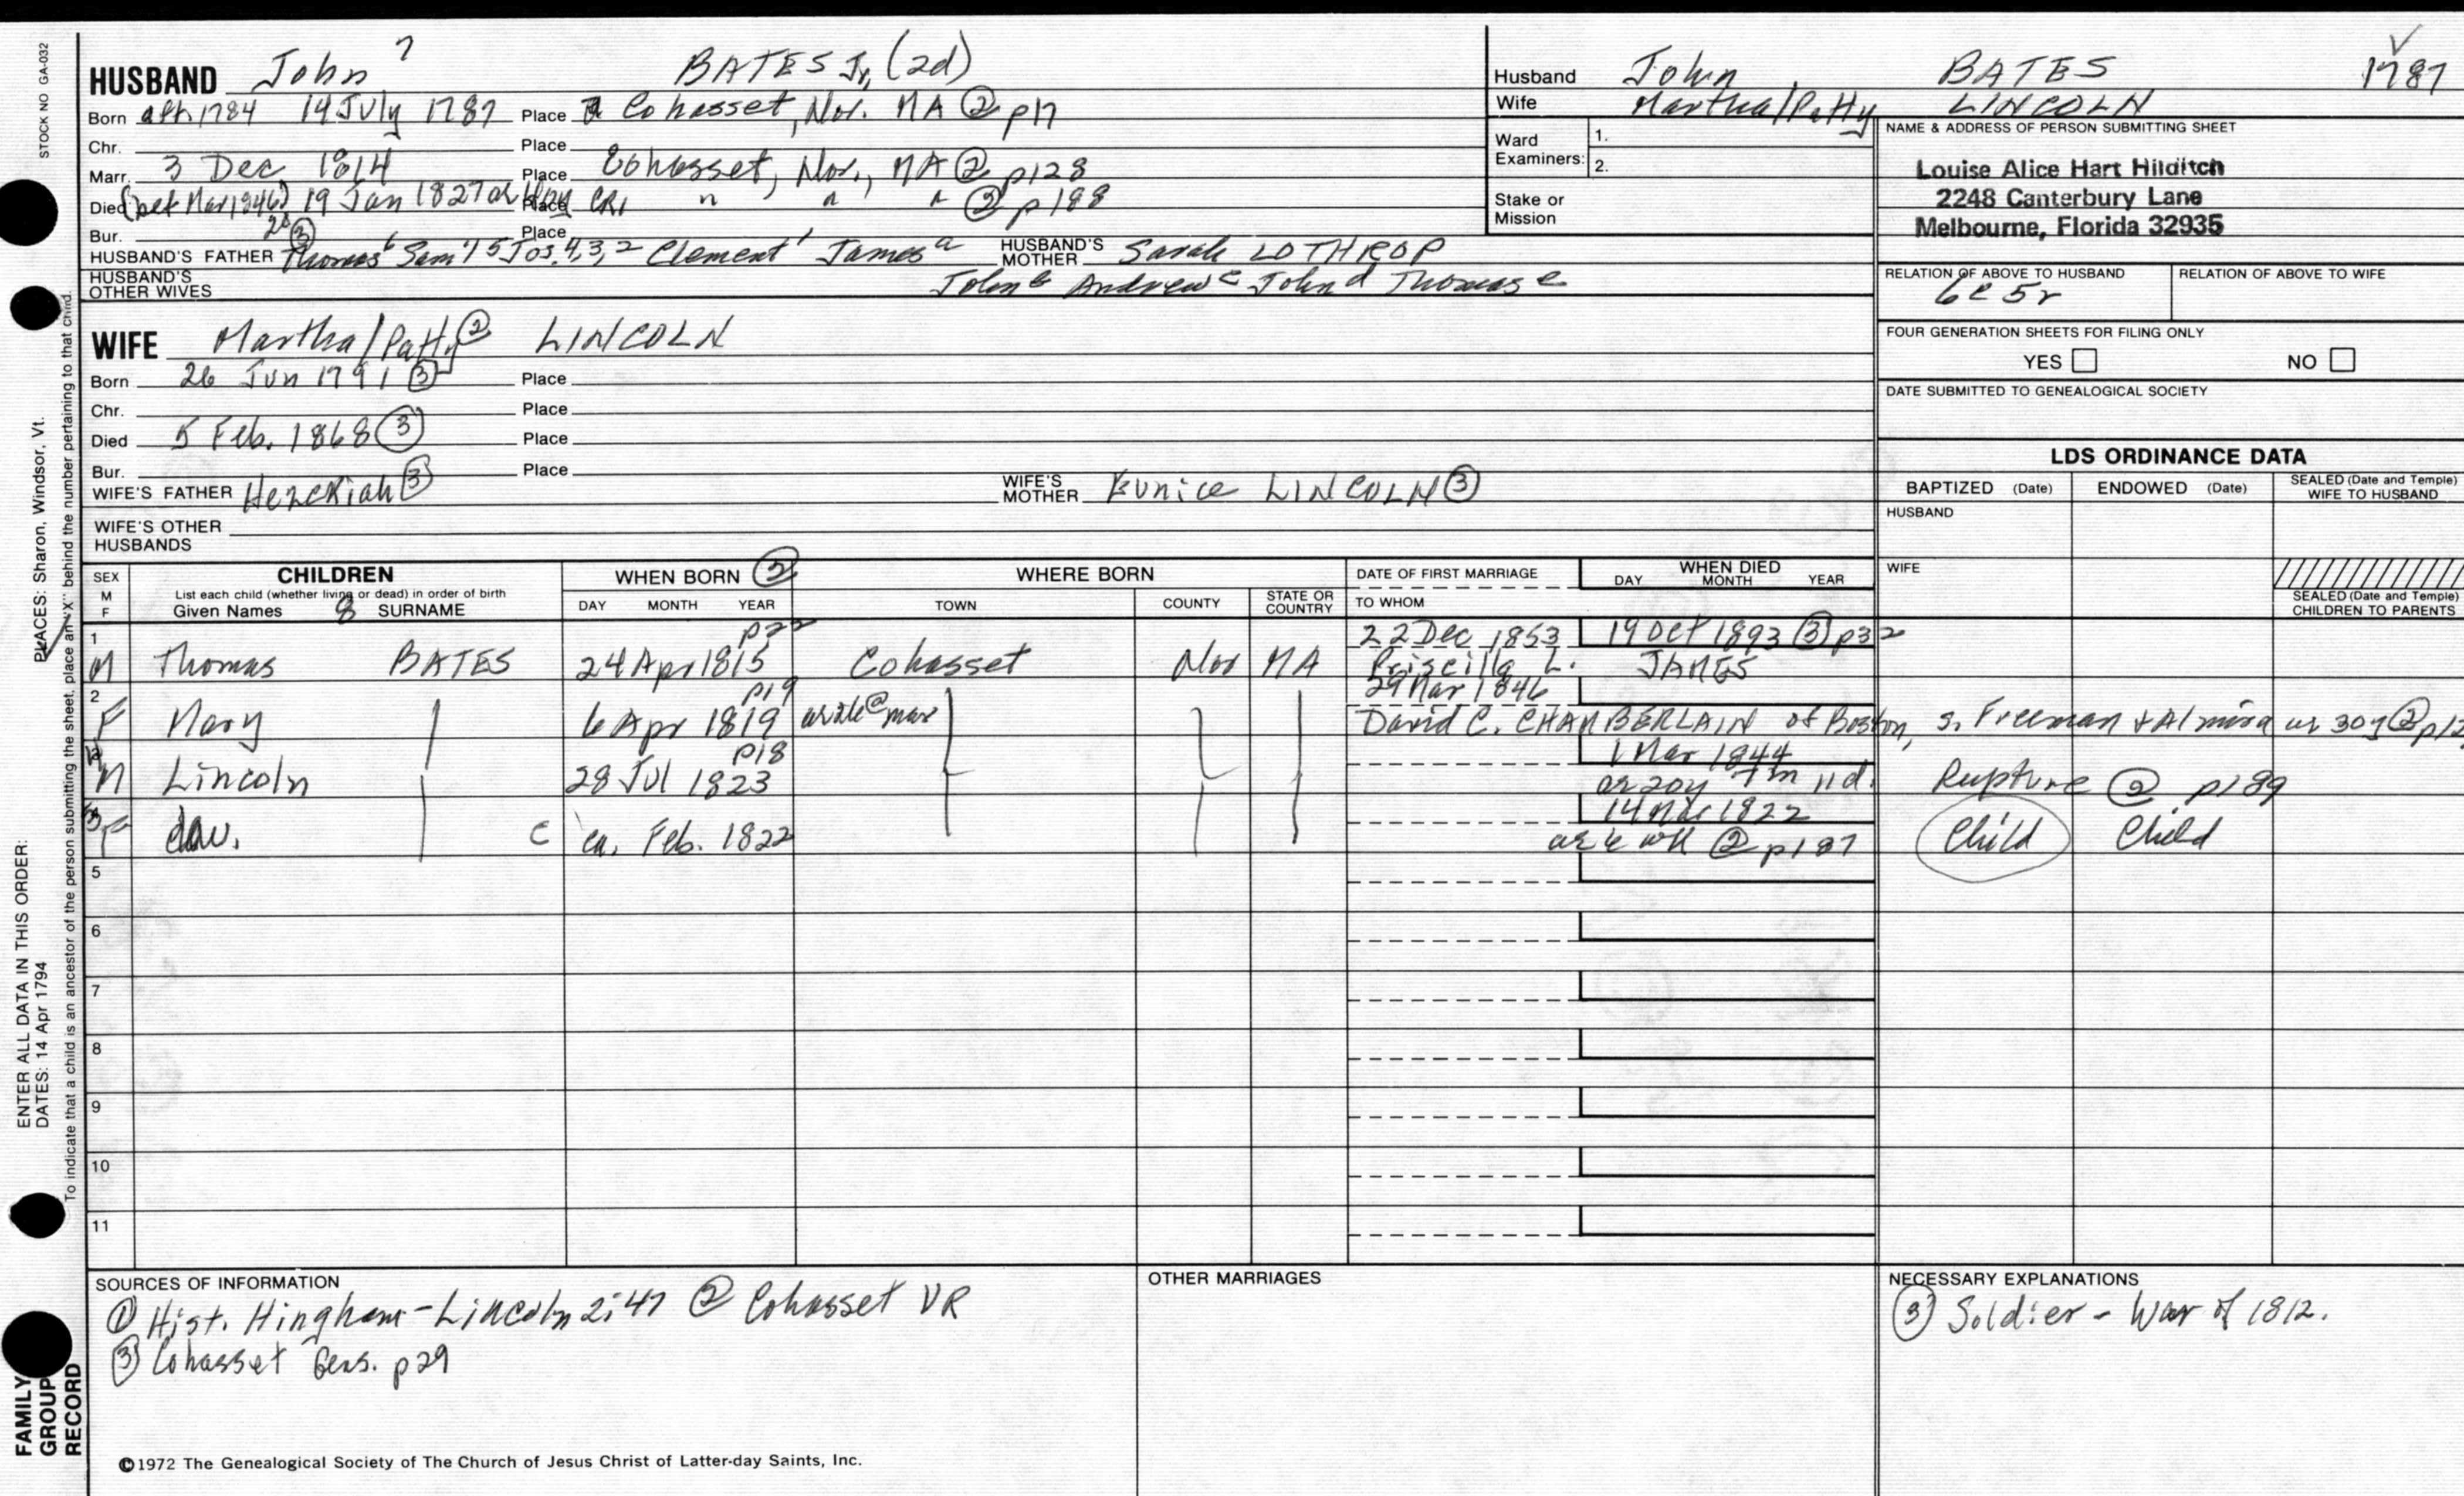 STOCK NO GA-032
HUSBAND John 7 BATES Jr, (2d)
Born aft. 1784 19 July 1787 Place Cohasset, Nor. MA ② p17
Chr. Place
Marr. 3 Dec 1814 Place Cohasset, Nor., MA ② p128
Died (bef Mar 1846) 19 Jan 1827 ae 40y CR1 Place " " " ② p188
Bur. 28 ③ Place
HUSBAND'S FATHER Thomas 6 Sam'l 5 Jos. 4, 3, 2 Clement 1 James a HUSBAND'S MOTHER Sarah LOTHROP
HUSBAND'S OTHER WIVES John b Andrew c John d Thomas e
WIFE Martha/Patty ② LINCOLN
Born 26 Jun 1791 ③ Place
Chr. Place
Died 5 Feb. 1868 ③ Place
Bur. Place
WIFE'S FATHER Hezekiah ③ WIFE'S MOTHER Eunice LINCOLN ③
WIFE'S OTHER HUSBANDS
Husband John BATES 1787
Wife Martha/Patty LINCOLN
Ward Examiners: 1. 2.
Stake or Mission
NAME & ADDRESS OF PERSON SUBMITTING SHEET
Louise Alice Hart Hilditch
2248 Canterbury Lane
Melbourne, Florida 32935
RELATION OF ABOVE TO HUSBAND RELATION OF ABOVE TO WIFE
6c 5r
FOUR GENERATION SHEETS FOR FILING ONLY
YES NO
DATE SUBMITTED TO GENEALOGICAL SOCIETY
LDS ORDINANCE DATA
BAPTIZED (Date) ENDOWED (Date) SEALED (Date and Temple) WIFE TO HUSBAND
HUSBAND
WIFE
SEALED (Date and Temple) CHILDREN TO PARENTS
SEX M F CHILDREN WHEN BORN ② WHERE BORN DATE OF FIRST MARRIAGE WHEN DIED
List each child (whether living or dead) in order of birth
Given Names & SURNAME DAY MONTH YEAR TOWN COUNTY STATE OR COUNTRY TO WHOM DAY MONTH YEAR
1 p22 22 Dec 1853 19 Oct 1893 ③ p32
M Thomas BATES 24 Apr 1815 Cohasset Nor MA Priscilla L. JAMES
2 p19 29 Mar 1846
F Mary 6 Apr 1819 ae 26 @ mar David C. CHAMBERLAIN of Boston, s. Freeman + Almira ae 30y ② p12
p18 1 Mar 1844
M Lincoln 28 Jul 1823 ae 20y 7m 11d. Rupture ② p189
3 14 1822
F dau. C ca. Feb. 1822 ae 6 wk ② p187 Child Child
5
6
7
8
9
10
11
SOURCES OF INFORMATION
① Hist. Hingham-Lincoln 2:47 ② Cohasset VR
③ Cohasset Gens. p29
OTHER MARRIAGES
NECESSARY EXPLANATIONS
③ Soldier - War of 1812.
©1972 The Genealogical Society of The Church of Jesus Christ of Latter-day Saints, Inc.
FAMILY GROUP RECORD
ENTER ALL DATA IN THIS ORDER:
DATES: 14 Apr 1794
PLACES: Sharon, Windsor, Vt.
To indicate that a child is an ancestor of the person submitting the sheet, place an "X" behind the number pertaining to that child.